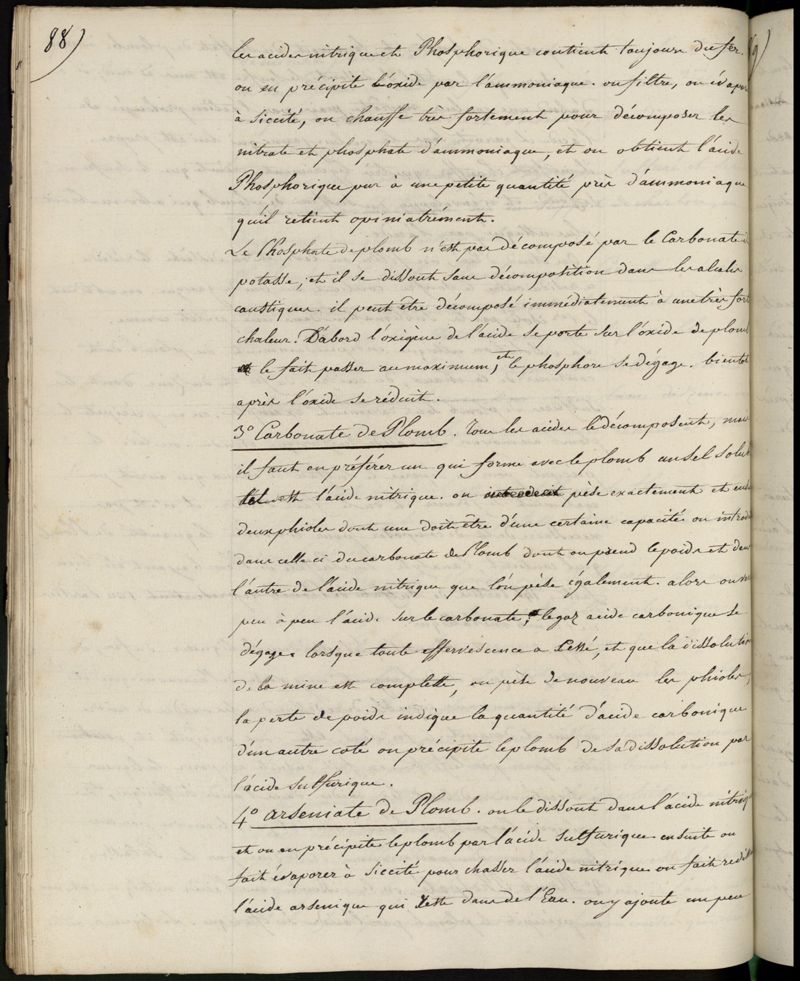 88)
les acides nitrique et Phosphorique contient toujours du fer.
on en précipite l'oxide par l'ammoniaque. on filtre, on évapo
à siccité, on chauffe très fortement pour décomposer les
nitrate et phosphate d'ammoniaque, et on obtient l'acide
Phosphorique pur à une petite quantité près d'ammoniaque
qu'il retient opiniatrément.
Le Phosphate de plomb n'est pas décomposé par le Carbonate de
potasse; et il se dissout sans décomposition dans les alcalis
caustiques. il peut être décomposé immédiatement à une très forte
chaleur. D'abord l'oxigène de l'acide se porte sur l'oxide de plomb
le fait passer au maximum, et le phosphore se dégage. bientot
après l'oxide se réduit.
3° Carbonate de Plomb. tous les acides le décomposent, mais
il faut en préférer un qui forme avec le plomb un sel solub
tel est l'acide nitrique. on pèse exactement et
deux phioles dont une doit être d'une certaine capacité on introd
dans celle ci du carbonate de Plomb dont on prend le poids et dans
l'autre de l'acide nitrique que l'on pèse également. alors on
peu à peu l'acide sur le carbonate; le gaz acide carbonique se
dégage. lorsque toute effervéscence a cessé, et que la dissolution
de la mine est complette, on pèse de nouveau les phioles,
la perte de poids indique la quantité d'acide carbonique
d'un autre coté on précipite le plomb de sa dissolution par
l'acide sulfurique.
4° arseniate de Plomb. on le dissout dans l'acide nitriq
et on en précipite le plomb par l'acide sulfurique ensuite on
fait évaporer à siccité pour chasser l'acide nitrique on fait
l'acide arsenique qui reste dans de l'Eau. on y ajoute un peu